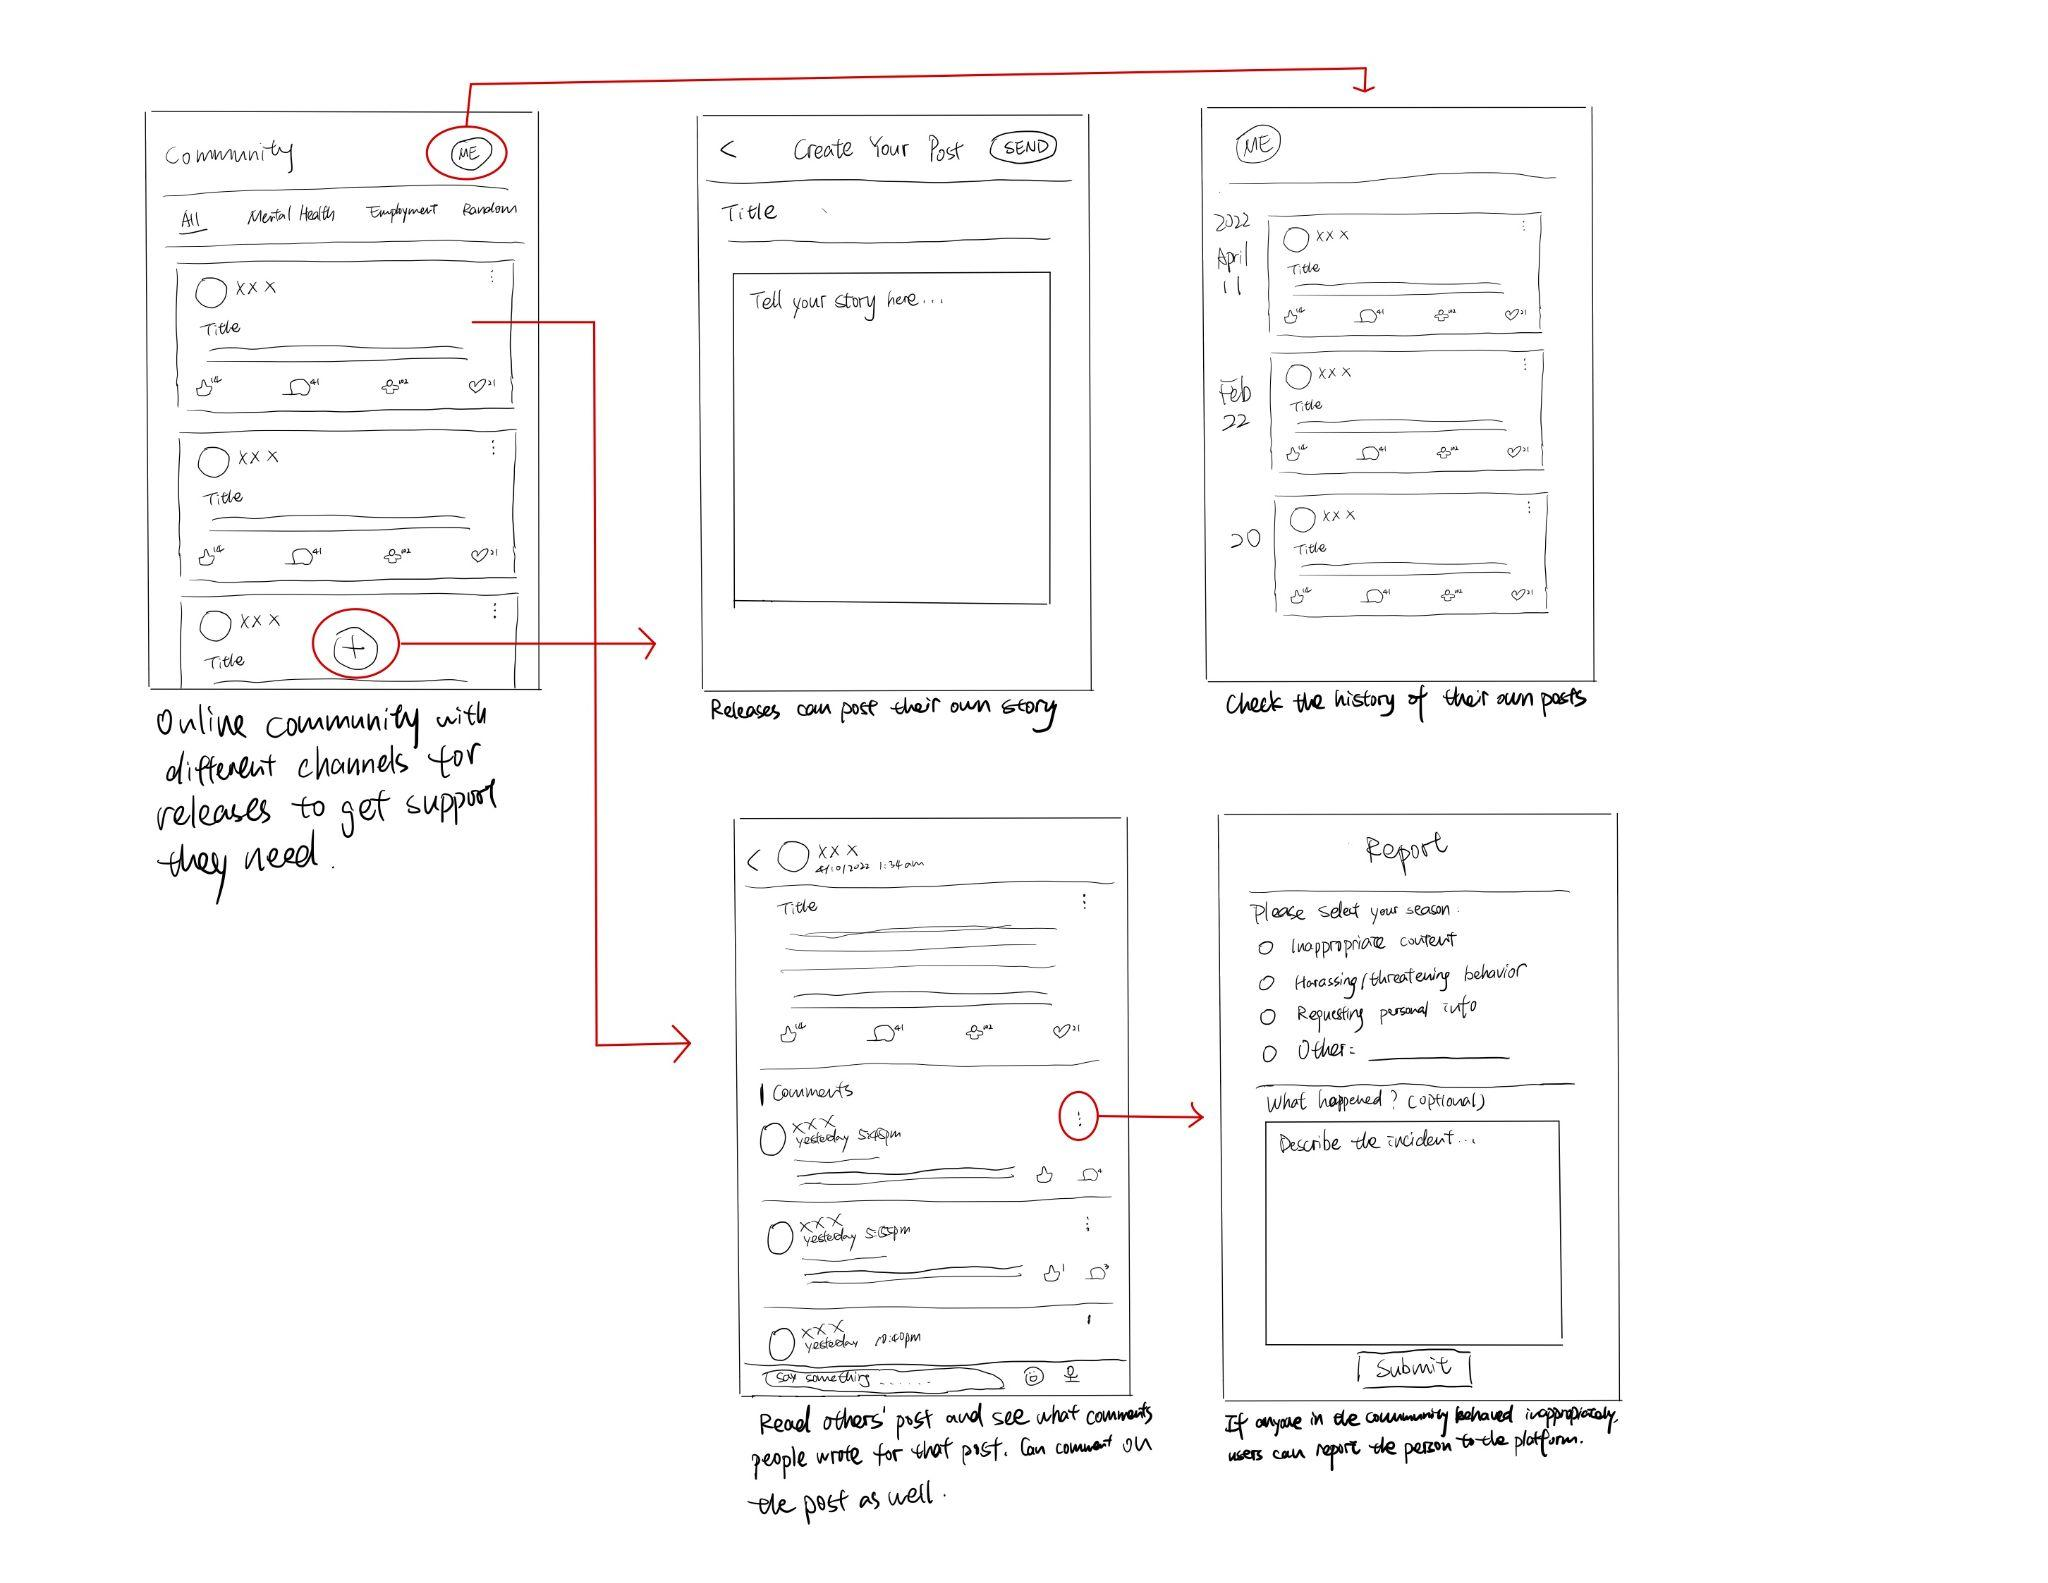 Community
ME
All Mental Health Employment Random
XXX
Title
14 41 102 21
XXX
Title
14 41 102 21
XXX
Title
+
Online community with
different channels for
releases to get support
they need.
< Create Your Post SEND
Title
Tell your story here...
Releases can post their own story
ME
2022
April
11
XXX
Title
14 41 102 21
Feb
22
XXX
Title
14 41 102 21
20
XXX
Title
14 41 102 21
Check the history of their own posts
< XXX
4/10/2022 1:34am
Title
14 41 102 21
Comments
XXX
yesterday 5:45pm
4
XXX
yesterday 5:55pm
1 3
XXX
yesterday :40pm
Say something ......
Read others' post and see what comments
people wrote for that post. Can comment on
the post as well.
Report
Please select your season.
Inappropriate content
Harassing/threatening behavior
Requesting personal info
Other:
What happened? (optional)
Describe the incident...
Submit
If anyone in the community behaved inappropriately,
users can report the person to the platform.